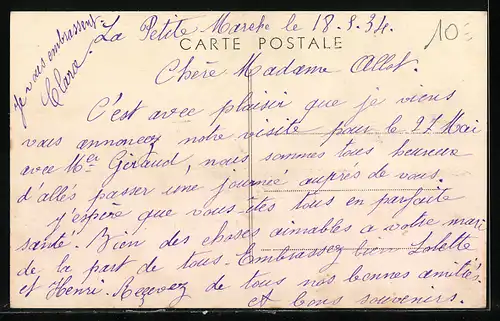 La Petite Marche le 18.5.34.
10=
CARTE POSTALE
Chère Madame Allot.
C'est avec plaisir que je viens
vous annoncez notre visite pour le 27 Mai
avec Mer Giraud, nous sommes tous heureux
d'allés passer une journée auprès de vous.
j'espère que vous êtes tous en parfaite
santé. Bien des choses aimables a votre mari
de la part de tous. Embrassez bien Lolette
et Henri. Recevez de tous nos bonnes amitiés
et bons souvenirs.
Je vous embrassent.
Clara